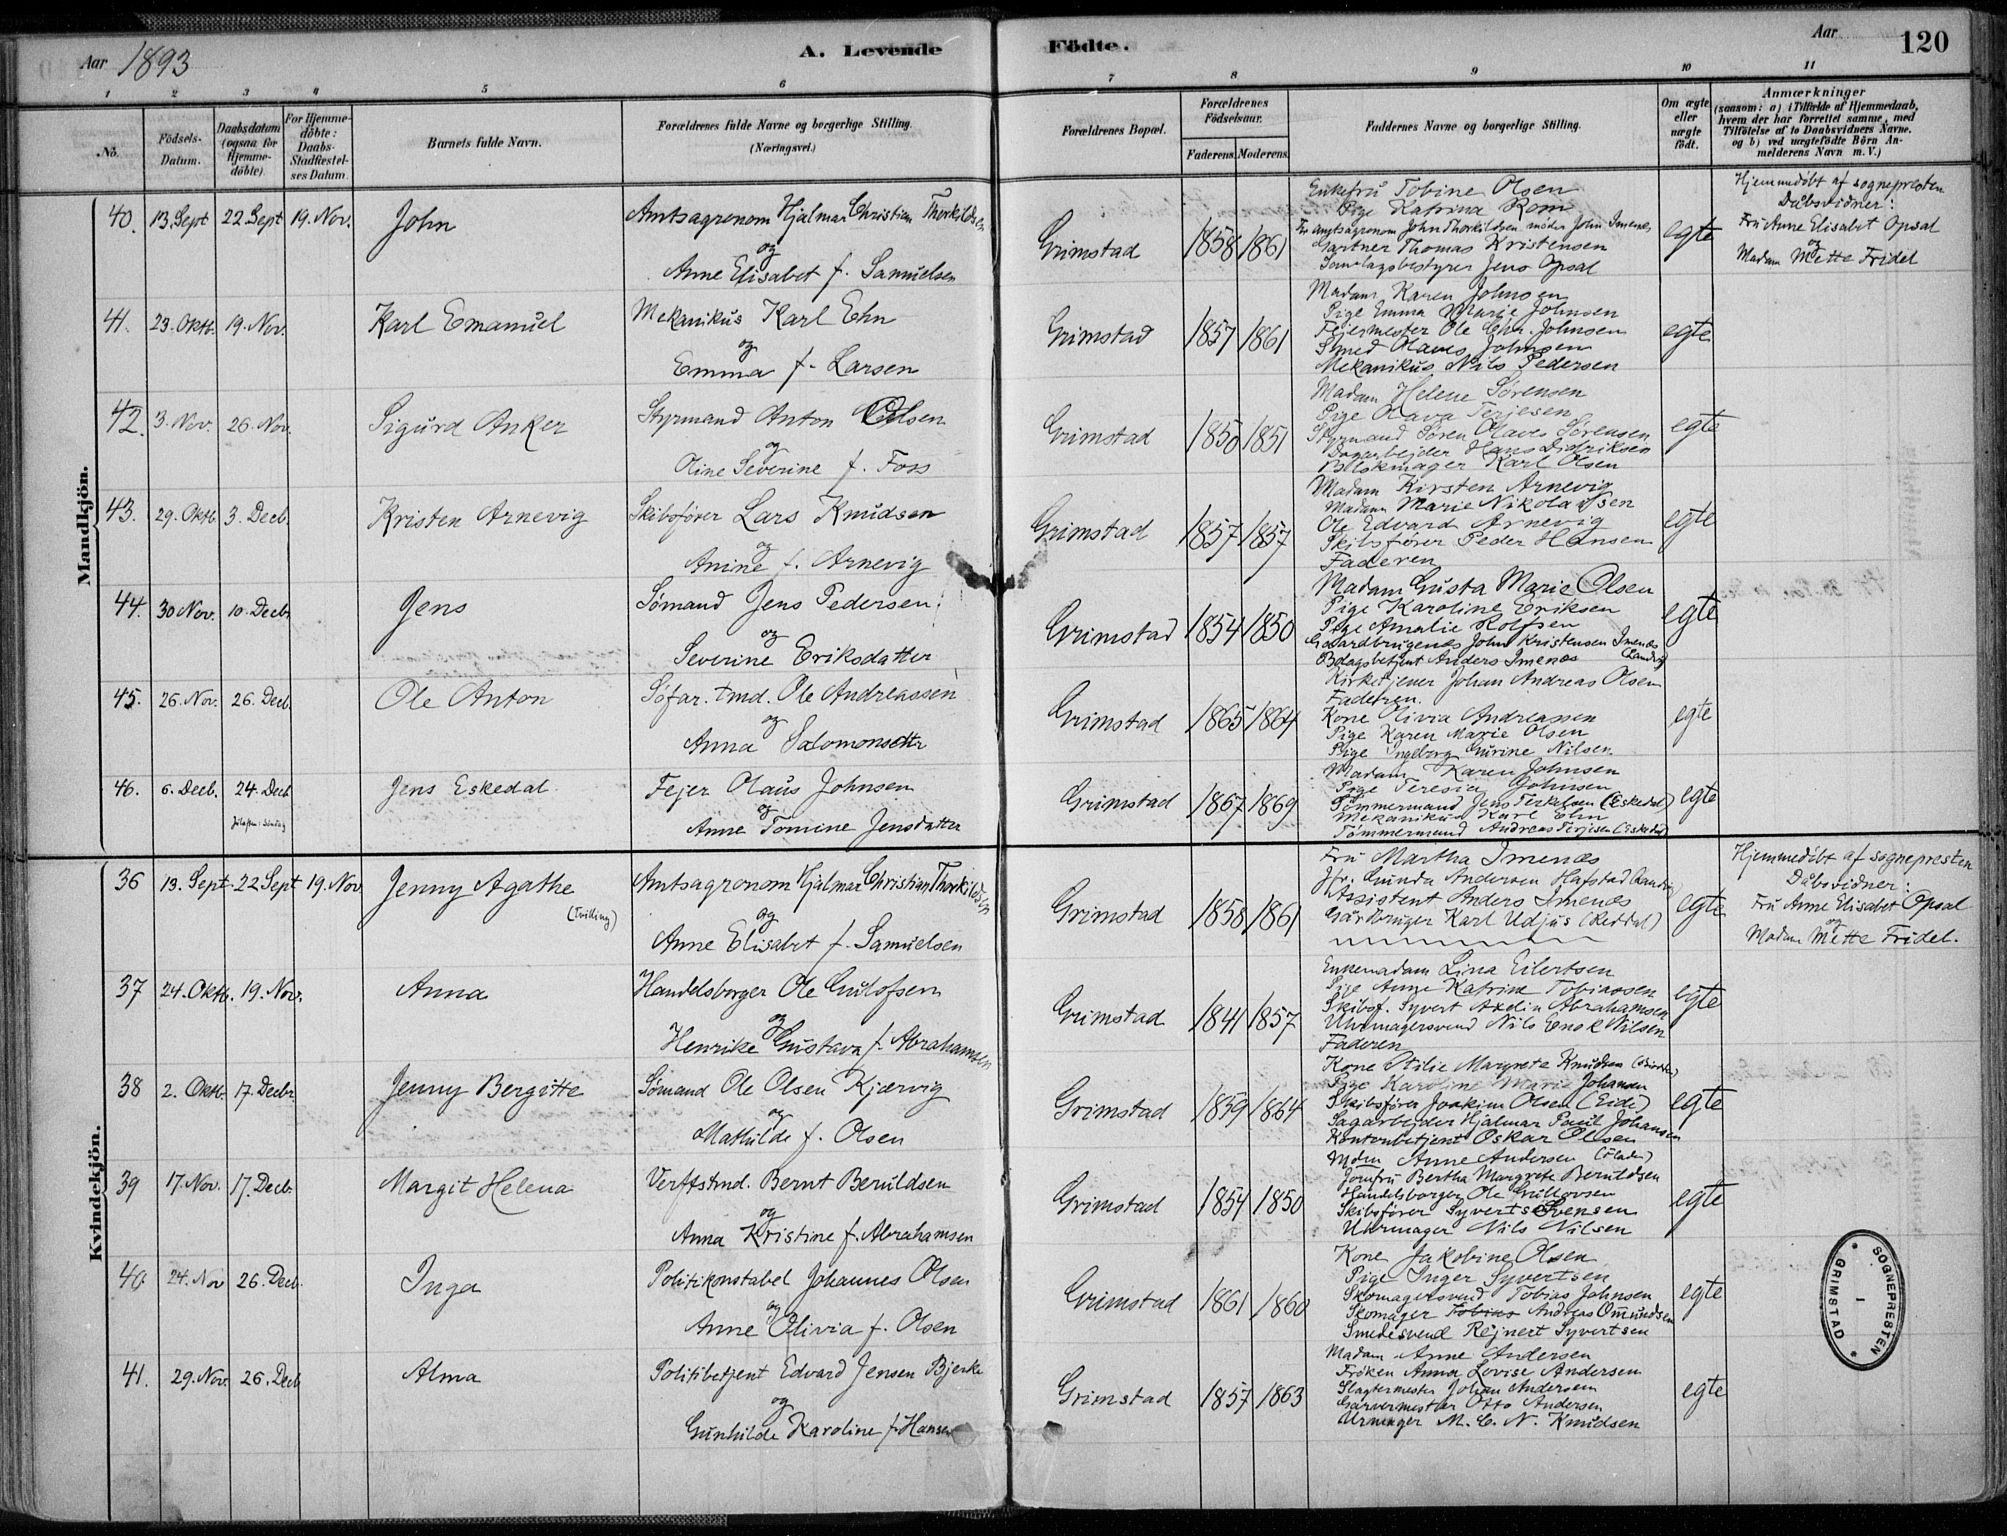 Aar 1893
A. Levende
Födte.
Aar
120
1 2 3 4 5 6 7 8 9 10 11
No.
Födsels-
Datum.
Daabsdatum
(ogsaa for
Hjemme-
döbte)
For Hjemme-
döbte:
Daabs-
Stadfæstel-
ses Datum.
Barnets fulde Navn.
Forældrenes fulde Navne og borgerlige Stilling.
(Næringsvei.)
Forældrenes Bopæl.
Forældrenes
Födselsaar.
Faderens. Moderens.
Faddernes Navne og borgerlige Stilling.
Om ægte
eller
uægte
födt.
Anmærkninger
(saasom: a) i Tilfælde af Hjemmedaab,
hvem der har forrettet samme, med
Tilföielse af to Daabsvidners Navne.
og b) ved uægtefödte Börn An-
melderens Navn m. V.)
Mandkjön.
40. 13. Sept 22. Sept 19. Nov. John
Amtsagronom Hjalmar Christian Thorkildsen
og
Anne Elisabet f. Samuelsen
Grimstad 1858 1861
Enkefru Tobine Olsen
Pige Katrina Rom
Fv. Amtsagronom John Thorkildsen møder John Imenes
Gartner Thomas Kristensen
Samlagsbestyrer Jens Opsal
egte
Hjemmedøbt af sognepresten
Dåbsvidner:
Fru Anne Elisabet Opsal
og
Madam Mette Fridel
41. 23. Oktb. 19. Nov. Karl Emanuel
Mekanikus Karl Ehn
og
Emma f. Larsen
Grimstad 1857 1861
Madam Karen Johnsen
Pige Emma Marie Johnsen
Fejermester Ole Chr. Johnsen
Smed Olaves Johnsen
Mekanikus Nils Pedersen
egte
42. 3. Nov. 26. Nov. Sigurd Anker
Styrmand Anton Olsen
og
Oline Severine f. Foss
Grimstad 1850 1851
Madam Helene Sørensen
Pige Olava Terjesen
Styrmand Søren Olaves Sørensen
Dagarbejder Hans Didriksen
Blokmager Karl Olsen
egte
43. 29. Oktb. 3. Decb. Kristen Arnevig
Skibsfører Lars Knudsen
og
Anine f. Arnevig
Grimstad 1857 1857
Madam Kirsten Arnevig
Madam Marie Nikolaisen
Ole Edvard Arnevig
Skibsfører Peder Hansen
Faderen
egte
44. 30 Nov. 10. Decbr. Jens
Sømand Jens Pedersen
og
Severine Eriksdatter
Grimstad 1854 1850
Madam Gusta Marie Olsen
Pige Karoline Eriksen
Pige Amalie Rolfsen
Gaardbrugende John Kristensen Imenes
(Landvig)
Bolagsbetjent Anders Imenæs
egte
45. 26. Nov. 26. Decb. Ole Anton
Søfar. tmd. Ole Andreassen
og
Anna Salomonsdttr
Grimstad 1865 1864
Kirketjener Johan Andreas Olsen
Faderen.
Kone Olivia Andreassen
Pige Karen Marie Olsen
Pige Ingeborg Gurine Nilsen
egte
46. 6. Decb. 24. Decb.
Jens Eskedal
Fejer Olaus Johnsen
og
Anne Tomine Jensdatter
Grimstad 1867 1869
Madam Karen Johnsen
Pige Teresia Johnsen
Tømmermand Jens Terkelsen (Eskedal)
Mekanikus Karl Ehn
Tømmermand Andreas Terjesen (Eskedal)
egte
Kvindekjön.
36 13. Sept. 22 Sept 19. Nov Jenny Agathe
(Tvilling)
Amtsagronom Hjalmar Christian Thorkildsen
og
Anne Elisabet f. Samuelsen
Grimstad 1858 1861
Fru Martha Imenæs
Jfr. Gunda Andersen Hafstad (Landvig)
Assistent Anders Imenæs
Gårdbruger Karl Udjus (Reddal)
egte
Hjemmedøbt af sognepresten
Dåbsvidner:
Fru Anne Elisabet Opsal
og
Madam Mette Fridel.
37 24. Oktb. 19. Nov. Anna
Handelsborger Ole Gulofsen
og
Henrike Gustava f. Abrahamsen
Grimstad 1841 1857
Enkemadam Lina Eilertsen
Pige Anne Katrine Tobiassen
Skibsf. Syvert Axdin Abrahamsen
Uhrmagersvend Nils Enok Nilsen
Faderen
egte
38 2. Oktb. 17. Decbr. Jenny Bergitte
Sømand Ole Olsen Kjærvig
og
Mathilde f. Olsen
Grimstad 1859 1864
Kone Otilie Margrete Knudsen
Pige Karoline Marie Johansen
Skibsfører Joakim Olsen (Eide)
Sagarbejder Hjalmar Paul Johansen
Kontorbetjent Oskar Olsen
egte
39 17. Nov. 17. Decb. Margit Helena
Verftstmd. Bernt Beruldsen
og
Anna Kristine f. Abrahamsen
Grimstad 1854 1850
Mdm Anne Andersen
Jomfru Bertha Margrete Beruldsen
Handelsborger Ole Gullovsen
Skibsfører Syvert Svensen
Uhrmager Nils Nilsen
egte
40 24. Nov 26. Decb. Inga
Politikonstabel Johannes Olsen
og
Anne Olivia f. Olsen
Grimstad 1861 1860
Kone Jakobine Olsen
Pige Inger Syvertsen
Skomagersvend Tobias Johnsen
Skomager Tobias Andreas Omundsen
Smedesvend Rejnert Syvertsen
egte
41. 29. Nov. 26. Decb Alma
Politibetjent Edvard Jensen Bjerke
og
Gunhilde Karoline f. Hansen
Grimstad 1857 1863
Madam Anne Andersen
Frøken Anna Lovise Andersen
Slagtermester Johan Andersen
Garvermester Otto Andersen
Urmager M. C. N. Knudsen
egte
SOGNEPRESTEN
I
GRIMSTAD